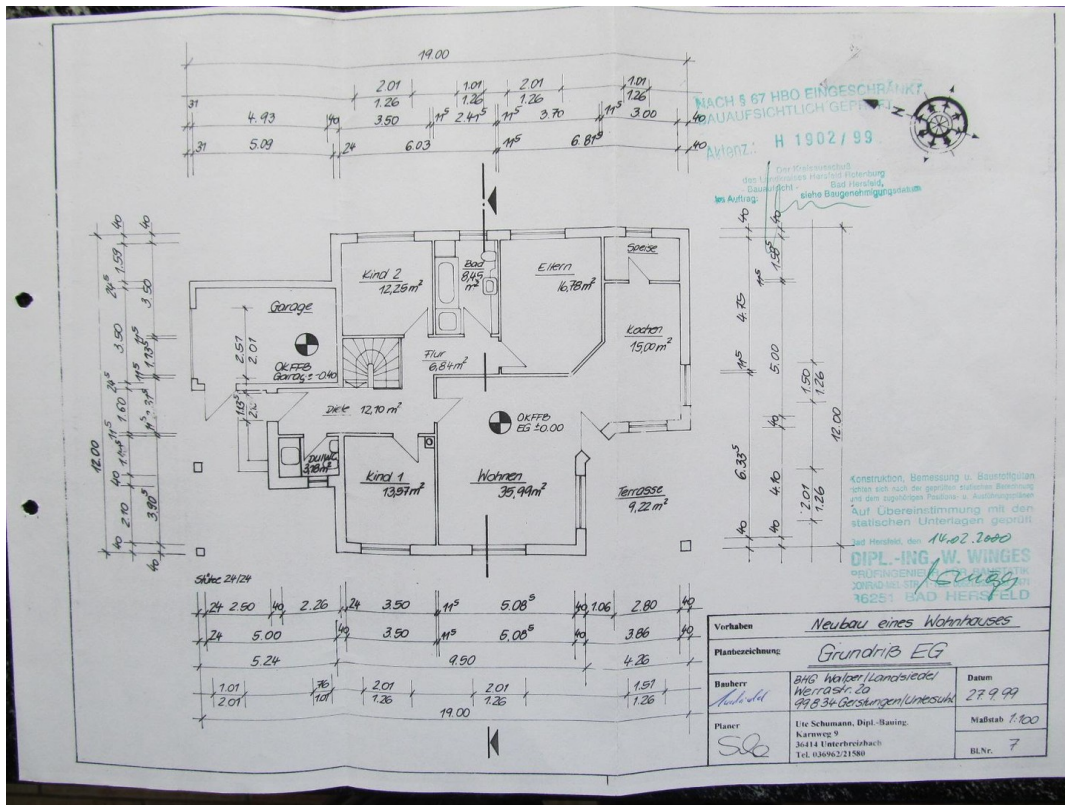 19.00
2.01 1.01 2.01 1.01
1.26 1.26 1.26 1.26
31 4.93 40 3.50 11⁵ 2.41⁵ 11⁵ 3.70 11⁵ 3.00 40
31 5.09 24 6.03 11⁵ 6.81⁵ 40
NACH § 67 HBO EINGESCHRÄNKT
BAUAUFSICHTLICH GEPRÜFT
Aktenz.: H 1902/99
Der Kreisausschuß
des Landkreises Hersfeld Rotenburg
- Bauaufsicht - Bad Hersfeld,
Im Auftrag: siehe Baugenehmigungsdatum
N
40 1.59 24⁵ 3.50 24⁵ 1.60 11⁵ 40 2.10 40
40 3.50 11⁵ 1.13⁵ 11⁵ 11⁵ 3.90⁵ 40
12.00
Kind 2
12,25m²
Bad
8,45
m²
Eltern
16,78m²
Speise
Kochen
15,00m²
Garage
2.57
2.01
OKFFB
Garage -0.40
Flur
6,84m²
1.13⁵
Diele 12,10m²
OKFFB
EG ±0.00
DU/WC
3,18m²
Kind 1
13,97m²
Wohnen
35,99m²
Terrasse
9,22m²
40 4.75 11⁵ 6.33⁵ 40
40 1.58⁵ 11⁵ 5.00 40 4.10 40
1.50
1.26
2.01
1.26
12.00
Stütze 24/24
24 2.50 40 2.26 24 3.50 11⁵ 5.08⁵ 40 1.06 2.80 40
24 5.00 40 3.50 11⁵ 5.08⁵ 40 3.86 40
5.24 9.50 4.26
1.01 76 2.01 2.01 1.51
2.01 1.01 1.26 1.26 1.26
19.00
Konstruktion, Bemessung u. Baustoffgüten
richten sich nach der geprüften statischen Berechnung
und dem zugehörigen Positions- u. Ausführungsplänen
Auf Übereinstimmung mit den
statischen Unterlagen geprüft
Bad Hersfeld, den 14.02.2000
DIPL.-ING. W. WINGES
PRÜFINGENIEUR BAUSTATIK
36251 BAD HERSFELD
Vorhaben Neubau eines Wohnhauses
Planbezeichnung Grundriß EG
Bauherr BHG Walper/Landsiedel
Werrastr. 2a
99834 Gerstungen/Untersuhl
Datum
27.9.99
Planer Ute Schumann, Dipl.-Bauing.
Karnweg 9
36414 Unterbreizbach
Tel. 036962/21580
Maßstab 1:100
Bl.Nr. 7